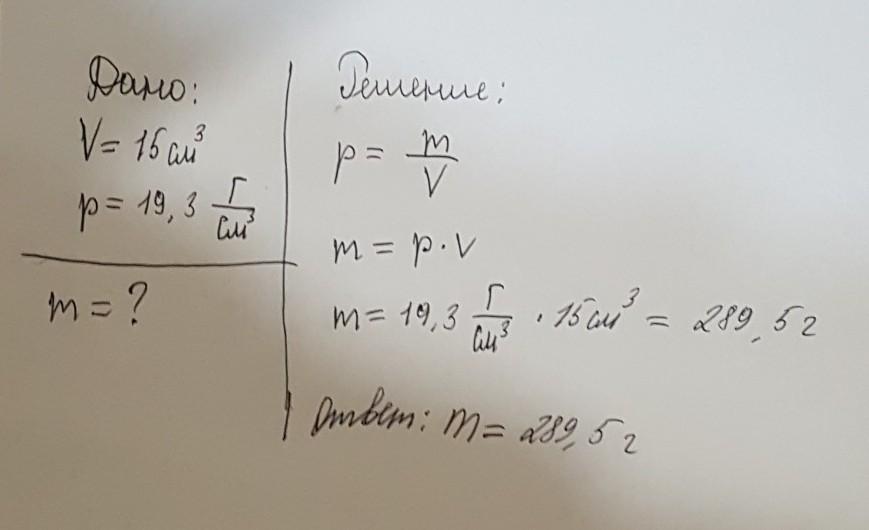 Дано:
V= 15 см³
p= 19,3 Г/см³
m = ?
Решение:
p = m/V
m = p·V
m= 19,3 Г/см³ · 15 см³ = 289,5 г
Ответ: m= 289,5 г